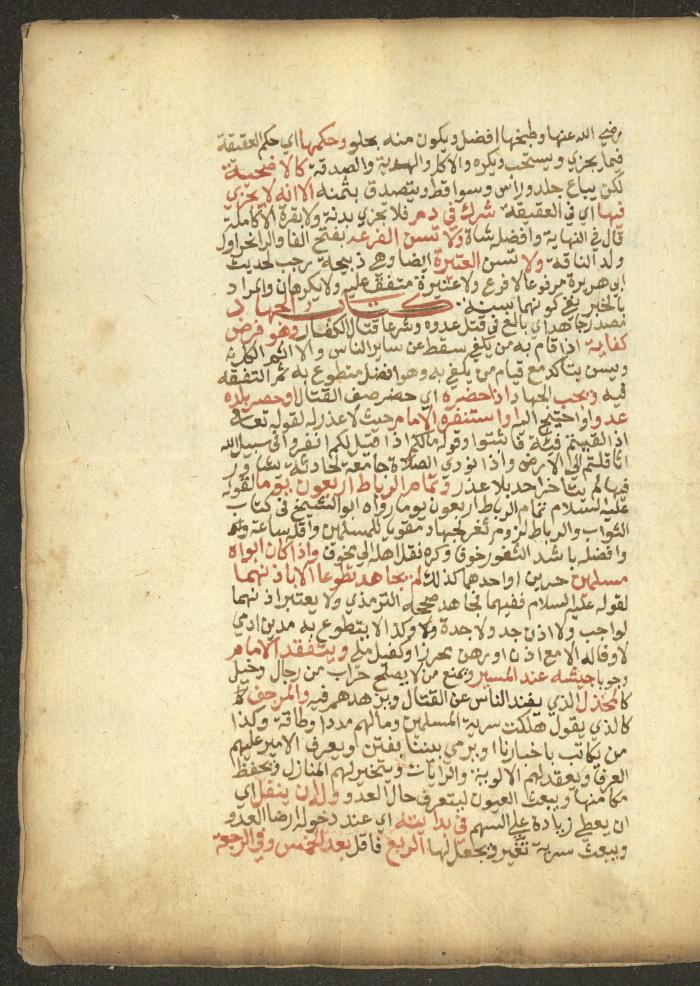 رضي الله عنها وطبخها افضل ويكون منه بحلو وحكمها اي حكم العقيقة
فيما يجزي ويستحب ويكره والاكل والهدية والصدقة كالاضحية
لكن يباع جلد وراس وسواقط ويتصدق بثمنه الا انه لا يجزي
فيها اي في العقيقة شرك في دم فلا يجزي بدنة ولا بقرة الا كاملة
قال في النهاية وافضله شاة ولا تسن الفرعة بفتح الفا والرا نحر اول
ولد الناقة ولا تسن العتيرة ايضا وهي ذبيحة رجب لحديث
ابي هريرة مرفوعا لا فرع ولا عتيرة متفق عليه ولا يكرهان والمراد
بالخبر نفي كونهما سنة كتاب الجهاد
مصدر جاهد اي بالغ في قتل عدوه وشرعا قتال الكفار وهو فرض
كفاية اذا قام به من يكفي سقط عن ساير الناس والا اثم الكل
ويسن بتاكد مع قيام من يكفي به وهو افضل متطوع به ثم النفقة
فيه ويجب الجهاد اذا حضره اي حضر صف القتال او حصر بلده
عدو او احتيج اليه او استنفره الامام حيث لا عذر له لقوله تعالى
اذا لقيتم فئة فاثبتوا وقوله مالكم اذا قيل لكم انفروا في سبيل الله
اثاقلتم الى الارض واذا نودي الصلاة جامعة لحادثة يشاور
فيها لم يتاخر احد بلا عذر وتمام الرباط اربعون يوما لقوله
عليه السلام تمام الرباط اربعون يوما رواه ابو الشيخ في كتاب
الثواب والرباط لزوم ثغر لجهاد مقوي للمسلمين واقله ساعة
وافضله باشد الثغور خوفا وكره نقل اهله الى مخوف واذا كان ابواه
مسلمين حرين او احدهما كذلك لم يجاهد تطوعا الا باذنهما
لقوله عليه السلام ففيهما فجاهد صححه الترمذي ولا يعتبر اذنهما
لواجب ولا اذن جد ولا جدة وكذا لا يتطوع به مدين ادمي
لا وفا له الا مع اذن او رهن يحرز او كفيل ملي ويتفقد الامام
وجوبا جيشه عند المسير ويمنع من لا يصلح لحرب من رجال وخيل
كالمخذل الذي يفند الناس عن القتال ويزهدهم فيه والمرجف
كالذي يقول هلكت سرية المسلمين وما لهم مدد او طاقة وكذا
من يكاتب باخبارنا او يرمي بيننا بفتن ويعرف الامير عليهم
العرفا ويعقد لهم الالوية والرايات ويتخير لهم المنازل ويحفظ
مكامنها ويبعث العيون ليتعرف حال العدو وله ان ينفل اي
ان يعطي زيادة على السهم في بدايته اي عند دخوله ارض العدو
ويبعث سرية تغير ويجعل لها الربع فاقل بعد الخمس وفي الرجعة